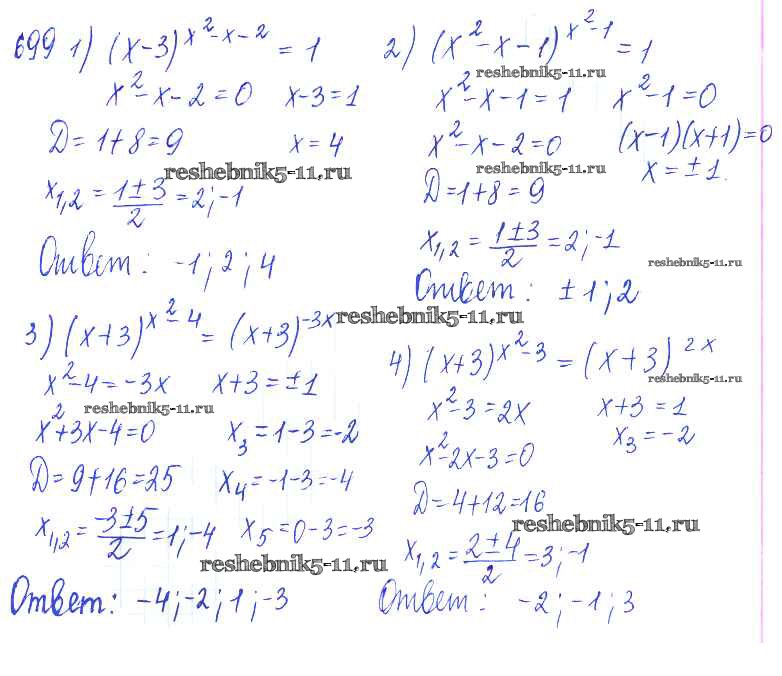 699 1) (x-3)^(x²-x-2) = 1
x²-x-2=0 x-3=1
D=1+8=9 x=4
reshebnik5-11.ru
x₁,₂ = (1±3)/2 = 2;-1
Ответ: -1; 2; 4
2) (x²-x-1)^(x²-1) = 1
reshebnik5-11.ru
x²-x-1=1 x²-1=0
x²-x-2=0 (x-1)(x+1)=0
reshebnik5-11.ru
D=1+8=9 x=±1.
x₁,₂ = (1±3)/2 = 2;-1
reshebnik5-11.ru
Ответ: ±1; 2
3) (x+3)^(x²-4) = (x+3)^(-3x)
reshebnik5-11.ru
x²-4=-3x x+3=±1
reshebnik5-11.ru
x²+3x-4=0 x₃=1-3=-2
D=9+16=25 x₄=-1-3=-4
x₁,₂ = (-3±5)/2 = 1;-4 x₅=0-3=-3
reshebnik5-11.ru
Ответ: -4;-2; 1;-3
4) (x+3)^(x²-3) = (x+3)^(2x)
reshebnik5-11.ru
x²-3=2x x+3=1
x²-2x-3=0 x₃=-2
D=4+12=16
reshebnik5-11.ru
x₁,₂ = (2±4)/2 = 3;-1
Ответ: -2;-1; 3